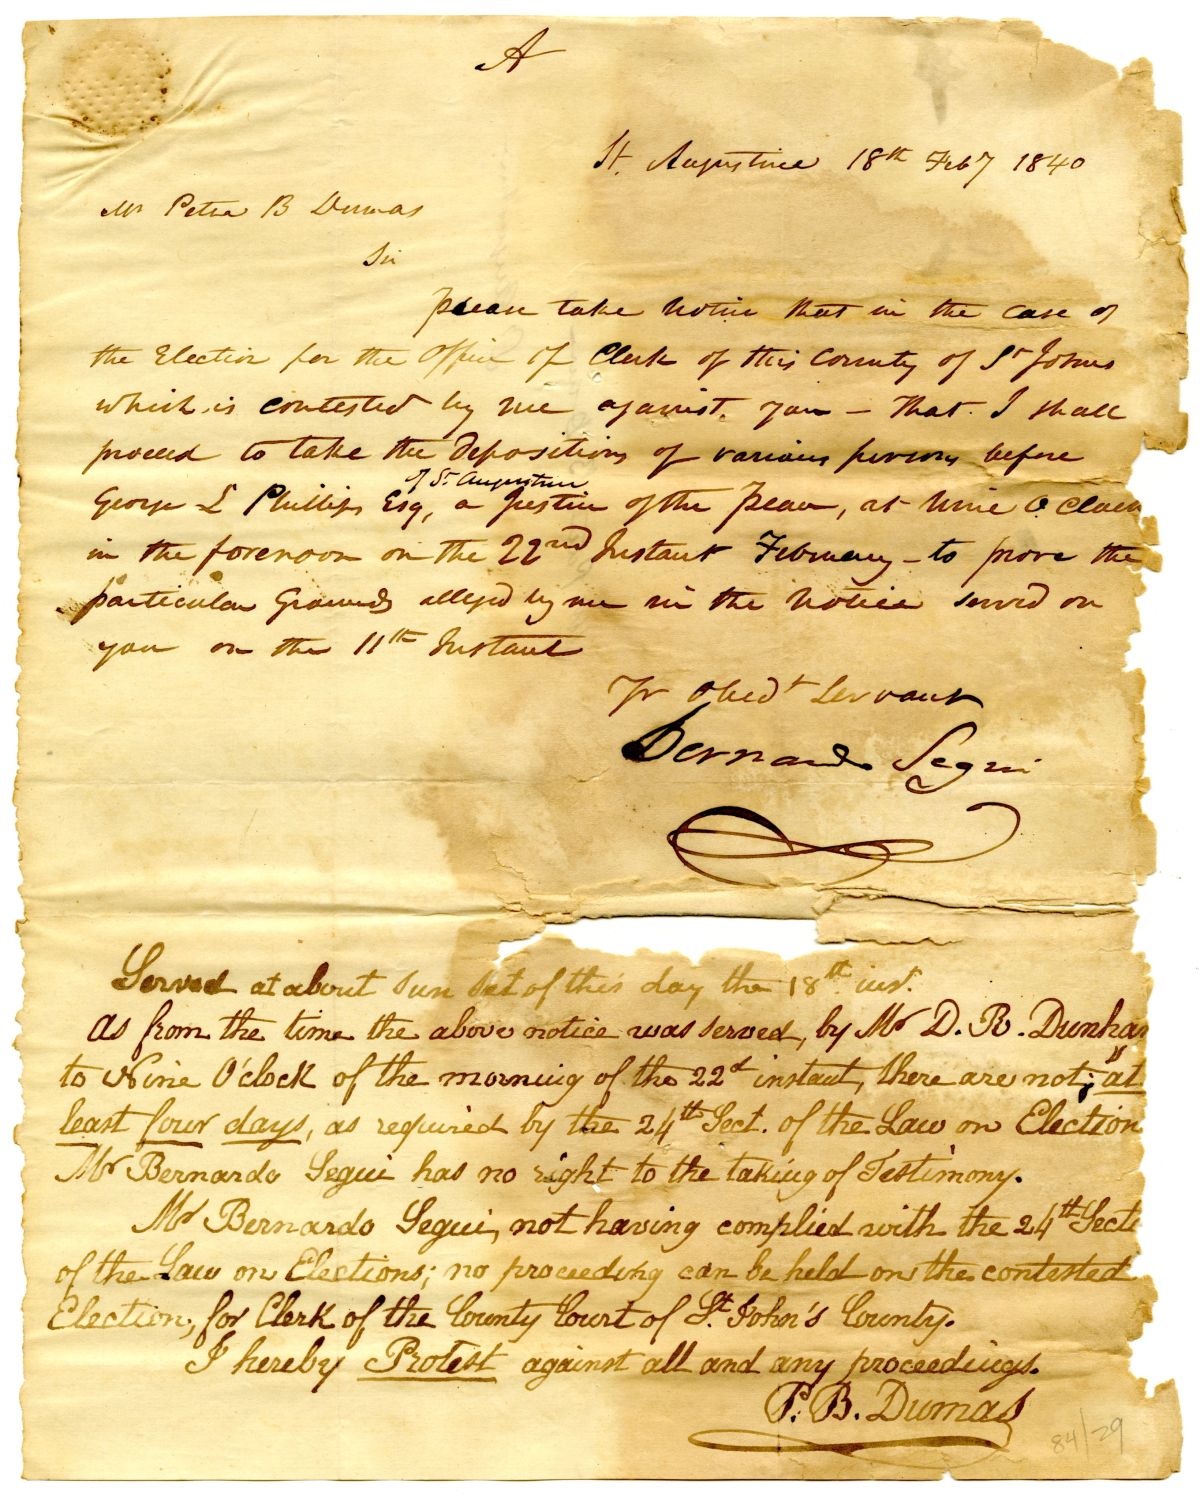 A
St. Augustine 18th Feby 1840
Mr Peter B Dumas
Sir
Please take Notice that in the case of
the Election for the Office of Clerk of this County of St Johns
which is contested by me against you – that I shall
proceed to take the depositions of various persons before
of St. Augustine
George L Phillips Esq, a Justice of the Peace, at Nine O.Clock
in the forenoon on the 22nd Instant February – to prove the
particular Grounds alleged by me in the Notice served on
you on the 11th Instant
Yr Obedt Servant
Bernardo Segui
Served at about sun set of this day the 18th inst.
As from the time the above notice was served, by Mr D. R. Dunham
to Nine O'clock of the morning of the 22d instant, there are not; "at
least four days, as required by the 24th Sect. of the Law on Election
Mr Bernardo Segui has no right to the taking of Testimony.
Mr Bernardo Segui, not having complied with the 24th Secte
of the Law on Elections; no proceeding can be held on the contested
Election, for Clerk of the County Court of St. John's County.
I hereby Protest against all and any proceedings.
P. B. Dumas
84/29